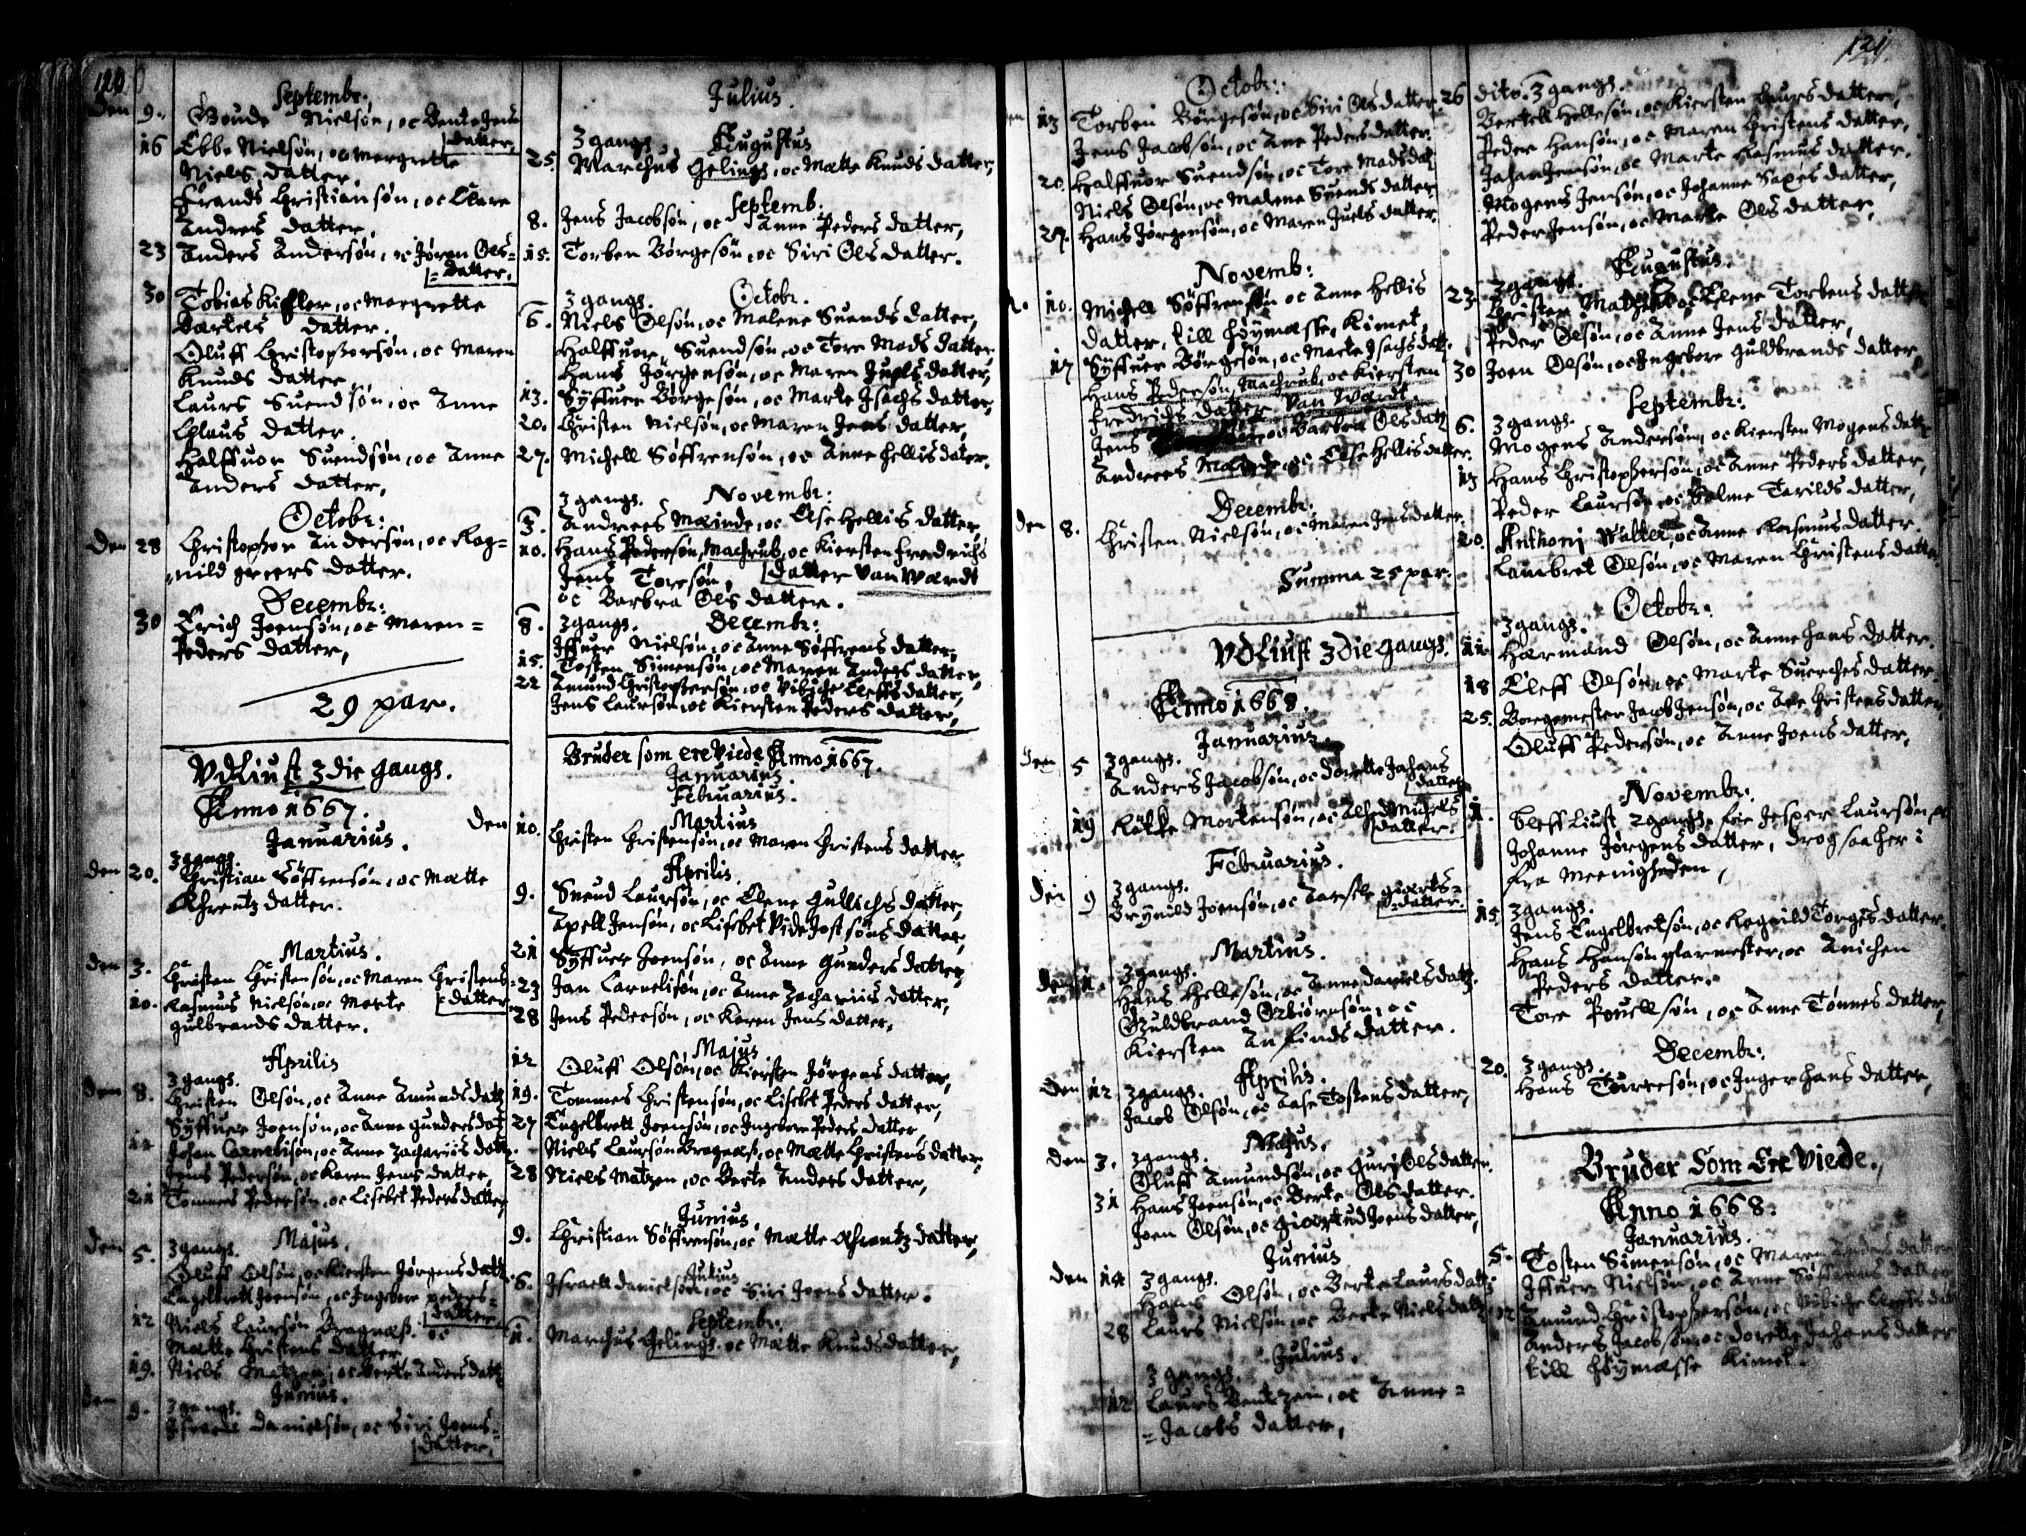 120
Septembr.
Den 9. Goude Nielsøn, oc Bente Jens
datter,
16 Ebbe Nielsøn, oc Margrette
Niels datter,
Frands Christiansøn, oc Clare
Andres datter,
23 Anders Andersøn, oc Jøren Ols=
=datter,
30 Tobias Kisler, oc Margrette
Bartels datter.
Oluff Christophersøn, oc Maren
Knuds datter,
Laurs Suendsøn, oc Anne
Claus datter.
Halffuor Suendsøn, oc Anne
Anders datter,
Octobr:
Den 28 Christopher Andersøn, oc Rag=
=nild Grers datter.
Decembr:
30 Erich Joensøn, oc Maren=
Peders datter,
29 par.
Vdliust 3die gangs.
Anno 1667.
Januarius.
3 gangs.
den 20. Christian Søffrensøn, oc Mætte
Ahrentz datter.
Martius.
den 3. Christen Christensøn, oc Maren Christens
datter
10. Rasmus Nielsøn, oc Marte
Gulbrands datter.
Aprilis
3 gangs.
den 8. Christen Olsøn, oc Anne Amunds datt
Syffuer Joensøn, oc Anne Gunders dat
14 Johan Cornelisøn, oc Anne Zachariis datt
Jens Pedersøn, oc Karen Jens datter,
21 Tommes Pedersøn, oc Lisebet Peders datter
Majus.
den 5. 3 gangs.
Oluff Olsøn, oc Kiersten Jørgens datt
Engelbrett Joensøn, oc Ingebore peders=
datter
12 Niels Laursøn Bragnæs. oc
Mætte Christens datter
19. Niels Matzen, oc Berte Anders datt
Junius.
den 9. 3 gangs.
Israell Danielsøn, oc Siri Joens=
datter,
Julius.
3 gangs. Augustus
25. Marchus Gelings, oc Mætte Knuds datter,
Septemb.
8. Jens Jacobsøn, oc Anne Peders datter,
15. Torben Børgesøn, oc Siri Ols datter.
3 gangs. Octobr.
6. Niels Olsøn, oc Malene Suends datter,
Halffuor Suendsøn, oc Tore Mads datter
Hans Jørgensøn, oc Maren Juels datter,
13. Syffuer Børgesøn, oc Marte Isachs datter,
20. Christen Nielsøn, oc Maren Jens datter,
27. Michell Søffrensøn, oc Anne Hellis dater.
3 gangs. Novembr:
3. Andrees Mæinde, oc Else Hellis datter
10. Hans Pedersøn, Machrub, oc Kiersten Fredrichs
datter Van Wardt
Jens Toresøn,
oc Barbra Ols datter.
8. 3 gangs. Decembr:
Iffuer Nielsøn, oc Anne Søffrens datter,
15. Tosten Simensøn, oc Maren Anders datter,
22 Amund Christophersøn, oc Vibiche Eleffs datter,
Jens Laursøn, oc Kiersten Peders datter,
Bruder som ere Viede Anno 1667.
Januarius.
Februarius.
Martius
Den 10. Christen Christensøn, oc Maren Christens datter
Aprilis.
9. Suend Laursøn, oc Elene Gullichs datter,
Apell Jensøn, oc Lisebet Vide Jost søns datter,
21 Syffuer Joensøn, oc Anne Gunders datter,
23 Jan Cornelisøn, oc Anne Zachariis datter,
28 Jens Pedersøn, oc Karen Jens datter,
Majus
12 Oluff Olsøn, oc Kiersten Jørgens datter,
19. Tommes Christensøn, oc Lisebet Peders datter,
27 Engelbrett Joensøn, oc Ingebore Peders datter
Niels Laursøn Bragnæs, oc Mætte Christens datter,
28 Niels Matzen, oc Berte Anders datter,
Junius.
9. Christian Søffrensøn, oc Mætte Ahrentz datter,
Julius
6. Israell Danielsøn, oc Siri Joens datter.
Septembr.
11. Marchus Gelings. oc Mætte Knuds datter,
121.
Octobr:
13 Torben Børgesøn, oc Siri Ols datter.
Jens Jacobsøn, oc Ane Peders datter.
20. Halffuor Suendsøn, oc Tore Mads dat
Niels Olsøn, oc Malene Suends datter
27. Hans Jørgensøn, oc Maren Juels datter.
Novemb:
10. Michell Søffrensøn oc Anne Hellis
datter, till Høymæsse, Kimet
17 Syffuer Børgesøn, oc Marte Isachs datt.
Hans Pedersøn, Machrub, oc Kiersten
Fredrichs datter Van Wardt
Jens oc Barbra Ols datt
Andrees Mæinde, oc Else Hellis datter.
Decembr.
den 8. Christen Nielsøn, oc Maren Jens datter.
Summa 25 par.
Vdliust 3die gangs.
Anno 1668.
Januarius.
den 5 3 gangs.
Anders Jacobsøn, oc Dorette Johans
datter
19 Køtke Mortensøn, oc Michels
datter.
Februarius.
den 9 3 gangs.
Brynild Joensøn, oc gierts=
=datter.
Martius.
den 1. 3 gangs.
Hans Hellesøn, oc Anne Daniels datt.
Guldbrand Orbiørnsøn, oc
Kiersten Anfinds datter.
Aprilis.
Den 12 3 gangs.
Jacob Olsøn, oc Aase Tostens datter,
Majus.
den 3. 3 gangs.
Oluff Amundsøn, oc Guri Ols datter.
31 Hans Joensøn, oc Berte Ols datter.
Joen Olsøn, oc Giertrud Joens datter,
Junius
den 14 3 gangs.
Hans Olsøn, oc Berte Laurs datt:
28 Laurs Nielsøn, oc Berte Niels datt
Julius.
3 gangs.
12 Laurs Bentzen, oc Anne=
=Jacobs datter,
26 dito. 3 gangs.
Bertell Hellesøn, oc Kiersten Laurs datter,
Peder Hansøn, oc Maren Christens datter,
Johan Jensøn, oc Marte Rasmus datter.
Mogens Jensøn, oc Johanne Saxes datter,
Peder Jensøn, oc Marte Ols datter,
Augustus.
3 gangs.
23. Christen Matzen, oc Elene Torbens datter
Peder Olsøn, oc Anne Jens datter,
30 Joen Olsøn, oc Ingebore Guldbrands datter
Septembr:
6. 3 gangs.
Mogens Andersøn, oc Kiersten Mogens datt
13 Hans Christophersøn, oc Anne Peders datter,
Peder Laursøn, oc Holme Tarilds datter,
20. Anthonj Walter, oc Anne Rasmus datter.
Lambret Olsøn, oc Maren Christens datter
Octobr:
3 gangs.
11 Harmand Olsøn, oc Anne Hans datter.
18 Eleff Olsøn, oc Marte Suerches datter.
25. Borgemester Jacob Jensøn, oc Ane Christens datter,
Oluff Pedersøn, oc Anne Joens datter,
Novembr:
1. bleff Liust 2 gangs. for Jesper Laursøn, oc
Johanne Jørgens datter, drog saa her i
fra Meenigheden,
15. 3 gangs.
Jens Engelbretsøn, oc Ragnild Torgis datter.
Hans Hansøn glarmester, oc Anichen
Peders datter.
Tore Pouellsøn, oc Anne Tønnes datter,
Decembr:
20. 3 gangs.
Hans Tourresøn, oc Inger Hans datter,
Bruder Som Ere Viede.
Anno 1668.
Januarius.
5. Tosten Simensøn, oc Maren Anders datter
Iffuer Nielsøn, oc Anne Søffrens datter
12 Amund Christophersøn, oc Vibiche Eleffs dat
Anders Jacobsøn, oc Dorette Johans datter
till Høymæsse Kimet.